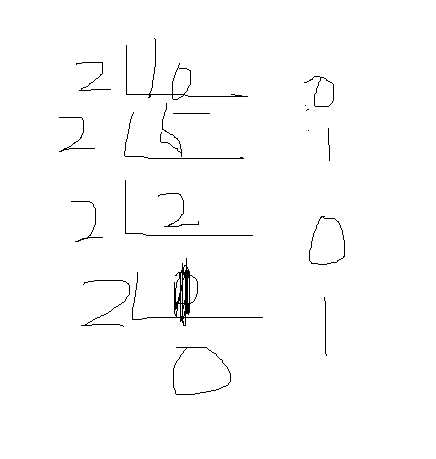 2 10 0
2 5 1
2 2 0
2 1
0